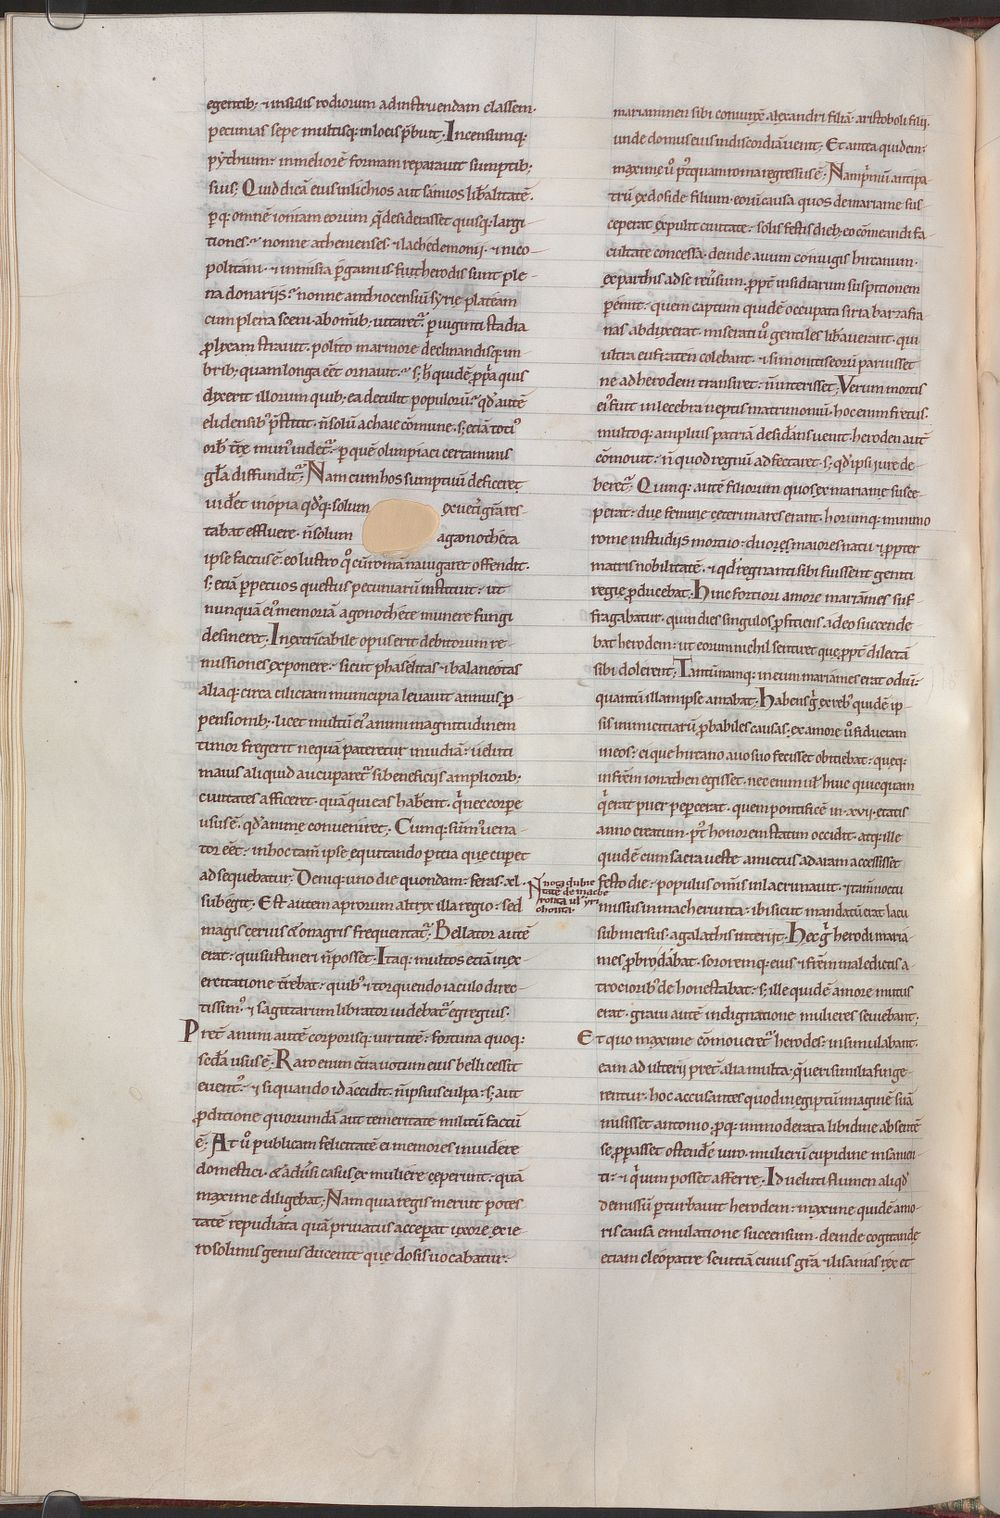 egentib; ⁊ insulis rodiorum ad instruendam classem.
pecunias sepe multisq; in locis p̄buit. Incensumq;
pẏthium: in meliorē formam reparauit sumptib;
suis; Quid dicā eius in lichios aut samios lib̄alitatē.
p q; omnē ioniam eorum qd̄ desiderasset quisq; largi
tiones? nonne athenienses. ⁊ lachedemonij. ⁊ nico
politani. ⁊ in misia p̄gamus fuit herodis sunt ple-
na donarijs? nonne anthiocensiū sẏrie plateam
cum plena sceni abomib; uitaret᷑. p uiginti stadia
plixam strauit. polito marmore declinandisq; im
brib; quam longa eēt ornauit? s; h̄ quidē ppa quis
dixerit illorum quib; ea detulit populorū? qd̄ autē
elidensib᷒ p̄stitit. n̄ solū achaie cōmune. s; eciā toti᷒
orb̄ tr̄e mun᷒ uidet᷑. p quē olimpiaci certaminis
gl̄a diffundit᷑; Nam cum hos sumptuū deficeret
uider̄et inopia qd̄q; solum ex uet̄i grā res
tabat effluere. n̄ solum agonotheta
ipse factus ē. eo lustro q̊ cū romā nauigaret offendit.
s; eciā ppetuos questus pecuniarū instituit. ut
nunquā ei᷒ memoriā agonothete munere fungi
desineret. Inextricabile opus erit debitorum re
missiones exponere. sicut phaselitas ⁊ balaneotas
aliaq; circa ciliciam municipia leuauit annuis p
pensionib;. licet multū ei᷒ animi magnitudinem
timor fregerit ne quā pateretur inuidiā. ueluti
maius aliquid aucuparet᷑. si beneficijs amplioribꝫ
ciuitates afficeret. quā qui eas hab̄ent. q̊ nec corpe
usus ē. qd̄ anime conueniret;. Cumq; sūm᷒ uena
tor eēt. in hoc tam̄ ipse equitando peritia que cuperet
adsequebatur. Deniq; uno die quondam: feras .xl.
subegit; Est autem aprorum altrix illa regio. sed
magis ceruis ⁊ onagris frequentat᷑. Bellator autē
erat. qui sustineri n̄ posset. Itaq; multos eciā in ex
ercitatione t̄rebat. quib᷒ ⁊ torquendo iaculo direc-
tissim᷒. ⁊ sagittarum librator uidebat᷑ egregius.
Pret̄ animi autē corporisq; uirtutē. fortuna quoq;
secūda usus ē. Raro enim c̄tra uotum eius belli cessit
euent᷒. ⁊ si quando id accidit. n̄ ipsius culpa. s; aut
pditione quorundā aut temeritate militū factū
ē; At u̾ publicam felicitatē ei memores inuidere
domestici. ⁊ adu̾si casus ex muliere ceperunt. quā
maxime diligebat; Nam quia regis meruit potes
tatē repudiata quā priuatus acceperat uxorē ex ie
rosolimis genus ducente que dosis uocabatur.
N̄ nota dubie
tate de mache
ronta ul̄ yri
chonta.
mariammen sibi coniunxē alexandri filiā. aristoboli filij.
unde domus eius in discordiā uenit; Et antea quidem:
maxime u̾ p̊tquam roma regressus ē. Nam p̊mū antipa
trū ex doside filium. eorū causa quos de mariame sus-
ceperat expulit ciuitate. solis festis dieb; eo cōmeandi fa
cultate concessa. deinde auum coniugis hircanum.
ex parthis ad se reu̾sum. ppt̄ insidiarum suspitionem
pemit. quem captum quidē occupata siria barzafra
nas abduxerat. miserati u̾ gentiles lib̄auerant. qui
ultra eufraten colebant. ⁊ si monitis eorū paruisset
ne ad herodem transiret. n̄ interisset; Verum mortis
ei᷒ fuit inlecebra neptis matrimoniū. hoc enim fretus.
multoq; amplius patriā desid̄ans uenit. heroden autē
cōmouit. n̄ quod regnū adfectaret. s; qd̄ ipsi iure de-
beret᷑. Quinq; autē filiorum quos ex mariame susce
perat. due femine ceteri mares erant. horumq; minimo
rome in studijs mortuo. duos maiores natu ⁊ ppter
matris nobilitatē. ⁊ qd̄ regnanti sibi fuissent geniti
regie pducebat. Huic fortiori amore mariames suf
fragabatur. qui in dies singulos pficiens. adeo succende
bat herodem. ut eorum nichil sentiret que ppt̄ dilectā
sibi dolerent; Tantū namq; in eum mariames erat odiū:
quantū illam ipse amabat. Habens g̊ ex reb᷒ quidē ip-
sis inimicitiarū pbabiles causas. ex amore u̾ fiduciam
in eos. ei que hircano auo suo fecisset obiciebat. queq;
in frēm ionathen egisset. nec enim ul̄ huic quicquam
q̊ erat puer pepercerat. quem pontificē in .xvij. etatis
anno creatum. p̊t honorem statim occidit. atq; ille
quidē cum sacra ueste amictus ad aram accessisset
festo die. populus om̄is inlacrimauit. ⁊ tam̄ noctu
missus in macherunta. ibi sicut mandatū erat lacu
submersus. a galathis interijt. Hec g̊ herodi maria
mes pbrodabat. sororemq; eius ⁊ frēm maledictis a-
trocioribus dehonestabat. s; ille quidē amore mutus
erat. graui autē indignatione mulieres seuiebant;
Et quo maxime cōmoueret᷑ herodes. insimulabant.
eam adulterij pret̄ alia multa. q̊ ueri similia finge
rentur. hoc accusantes quod in egiptū imaginē suā
misisset antonio. pq; immoderata libidine absentē
se properasset ostend̄e uiro. mulierū cupidine insanien
ti. ⁊ q̊ uim posset afferre. Id ueluti flumen aliqd̄
demissū p̄turbauit herodem. maxime quidē amo
ris causa emulatione succensum. deinde cogitande
etiam cleopatre seuitiā cuius grā ⁊ lisanias rex et